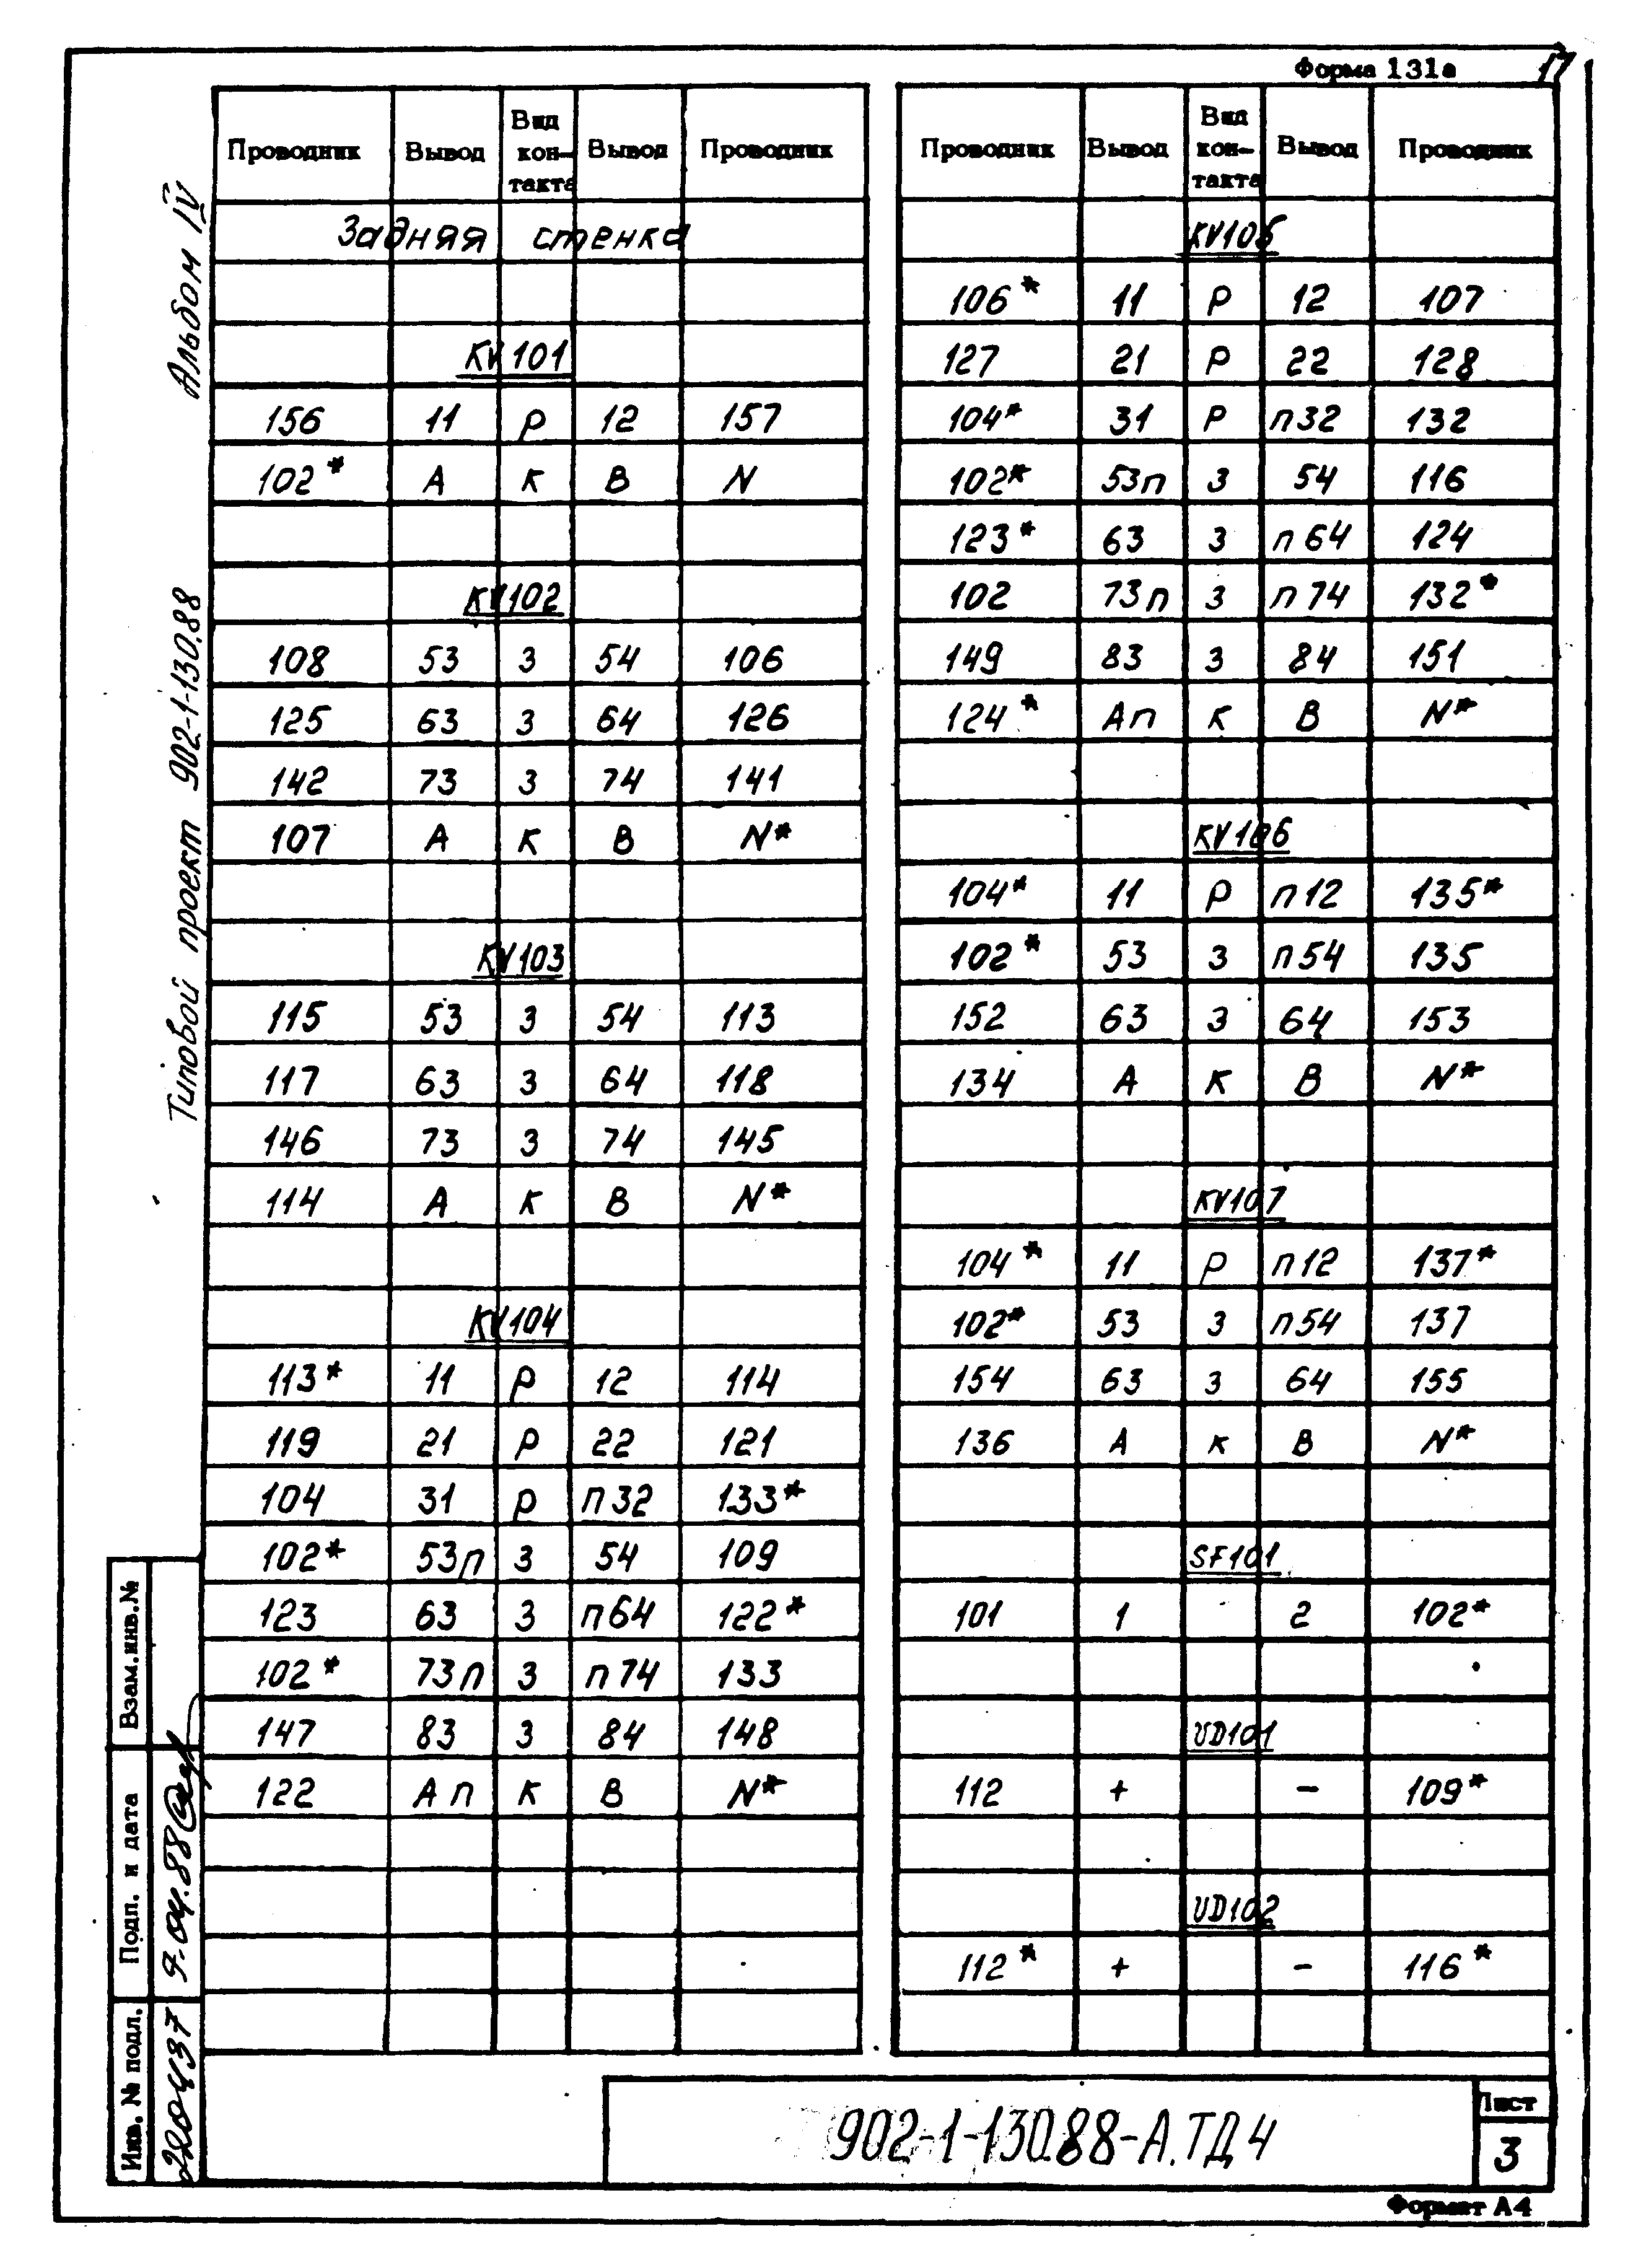 Форма 131а 17
Альбом IV
Типовой проект 902-1-130.88
Проводник Вывод Вид кон-такта Вывод Проводник
Задняя стенка
KV101
156 11 Р 12 157
102* А К В N
KV102
108 53 З 54 106
125 63 З 64 126
142 73 З 74 141
107 А К В N*
KV103
115 53 З 54 113
117 63 З 64 118
146 73 З 74 145
114 А К В N*
KV104
113* 11 Р 12 114
119 21 Р 22 121
104 31 Р п32 133*
102* 53п З 54 109
123 63 З п64 122*
102* 73п З п74 133
147 83 З 84 148
122 Ап К В N*
Проводник Вывод Вид кон-такта Вывод Проводник
KV105
106* 11 Р 12 107
127 21 Р 22 128
104* 31 Р п32 132
102* 53п З 54 116
123* 63 З п64 124
102 73п З п74 132*
149 83 З 84 151
124* Ап К В N*
KV106
104* 11 Р п12 135*
102* 53 З п54 135
152 63 З 64 153
134 А К В N*
KV107
104* 11 Р п12 137*
102* 53 З п54 137
154 63 З 64 155
136 А К В N*
SF101
101 1 2 102*
UD101
112 + - 109*
UD102
112* + - 116*
Взам.инв.№
Подп. и дата
Инв. № подл.
902-1-130.88-А.ТД4
Лист
3
Формат А4